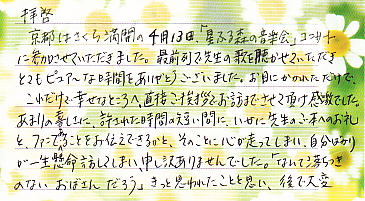 拝啓
京都はさくら満開の4月13日、「星ふる森の音楽会」コンサート
に参加させていただきました。最前列で先生の歌を聴かせていただき
とてもピュアーな時間をありがとうございました。お目にかかれただけで、
これだけで幸せなところへ、直接ご挨拶とお話までさせて頂け感激でした。
あまりの喜しさに、許された時間の短い間に、いかに先生のご本のお礼
と、ファンであることをお伝えできるかと、そのことに心が走ってしまい、自分ばかり
が一生懸命話してしまい、申し訳ありませんでした。「なんて落ちつき
のない おばさんだろう」きっと思われたことと思い、後で大変